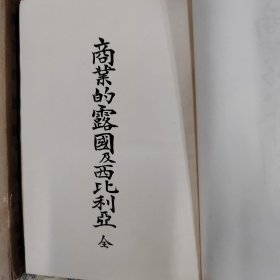 商業的露國及西比利亞 全